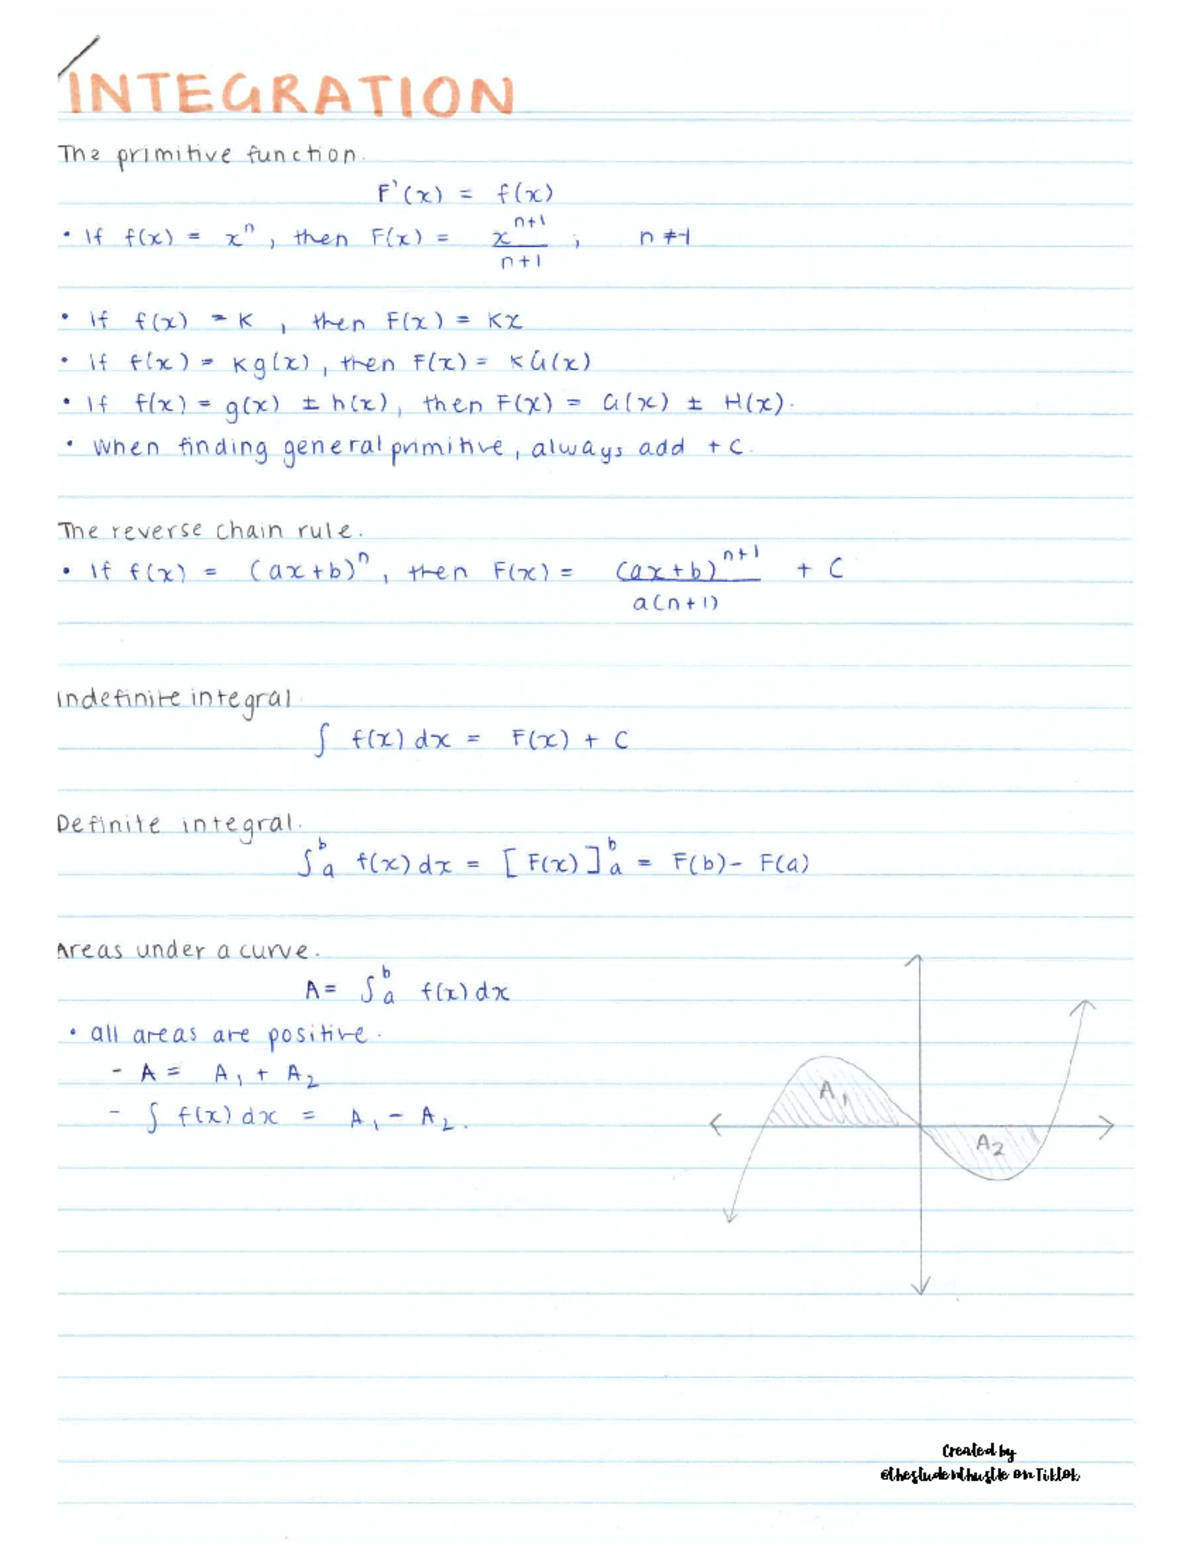 INTEGRATION
The primitive function.
F'(x) = f(x)
• If f(x) = xⁿ, then F(x) = xⁿ⁺¹/n+1 ; n ≠ -1
• If f(x) = K, then F(x) = Kx
• If f(x) = Kg(x), then F(x) = KG(x)
• If f(x) = g(x) ± h(x), then F(x) = G(x) ± H(x).
• When finding general primitive, always add + C.
The reverse chain rule.
• If f(x) = (ax+b)ⁿ, then F(x) = (ax+b)ⁿ⁺¹/a(n+1) + C
Indefinite integral
∫ f(x) dx = F(x) + C
Definite integral.
∫ₐᵇ f(x) dx = [F(x)]ₐᵇ = F(b) - F(a)
Areas under a curve.
A = ∫ₐᵇ f(x) dx
• all areas are positive.
- A = A₁ + A₂
- ∫ f(x) dx = A₁ - A₂.
A₁
A₂
Created by
@thestudenthustle on TikTok